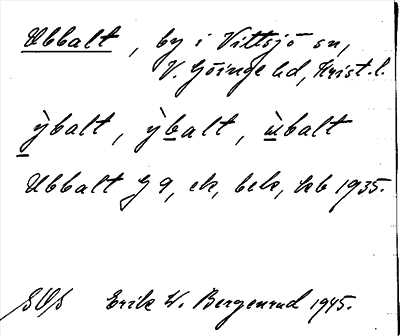 Ubbalt, by i Vittsjö sn,
V. Göinge hd, Krist. l.
ỳbalt, ỳbalt, ùbalt
Ubbalt G 9, ek, bek, 1935.
SOS Erik W. Bergenrud 1945.